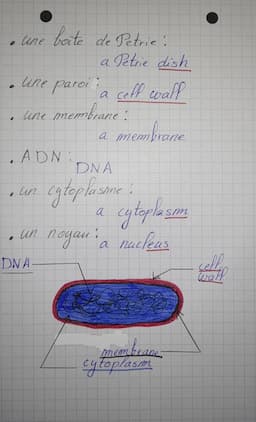 . une boîte de Pétrie :
a Pétrie dish
. une paroi :
a cell wall
. une membrane :
a membrane
. ADN :
DNA
. un cytoplasme :
a cytoplasm
. un noyau :
a nucleus
DNA
cell
wall
membrane
cytoplasm